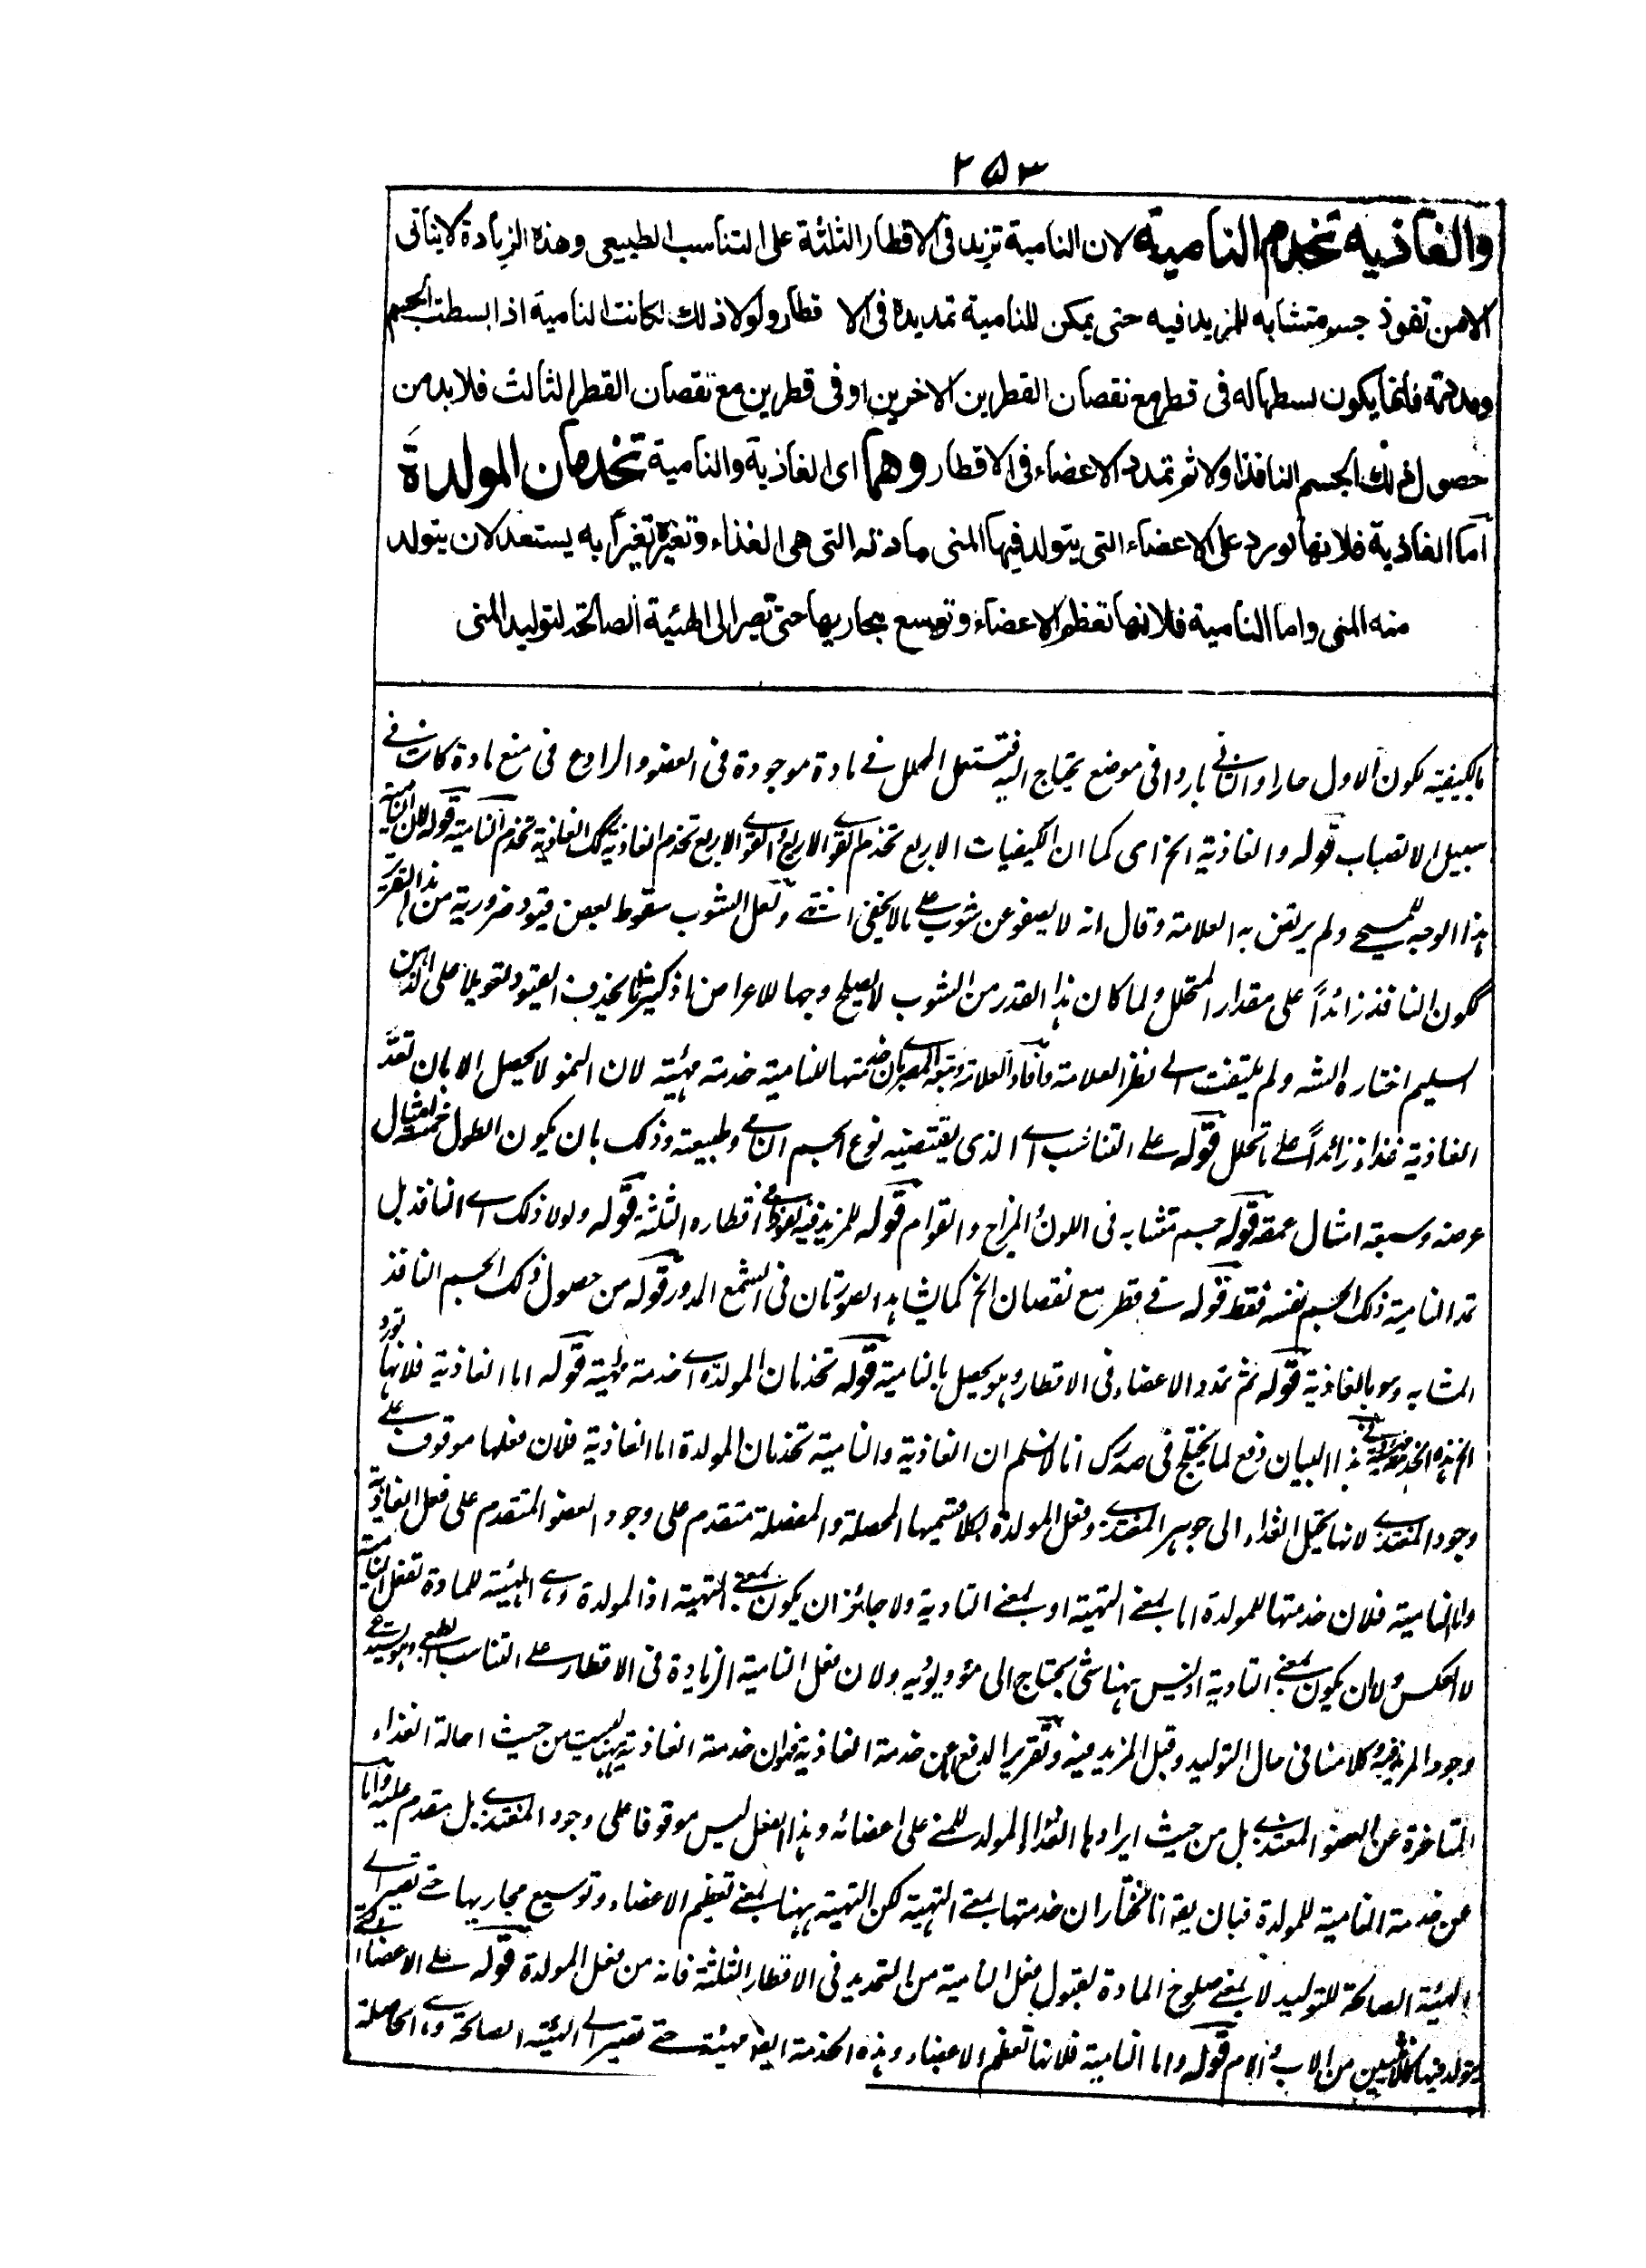 ٢٥٣
والغاذية تخدم النامية لان النامية تزيد فى الاقطار الثلثة على التناسب الطبيعى وهذه الزيادة لا يتأتى
الا من نفوذ جسم متشابه للمزيد فيه حتى يمكن للنامية تمديده فى الا قطار ولولا ذلك لكانت النامية اذا بسطت الجسم
ومددته فانما يكون بسطها له فى قطر مع نقصان القطرين الاخرين او فى قطرين مع نقصان القطر الثالث فلا بد من
حصول ذلك الجسم النافذ اولا ثم تمدد الاعضاء فى الاقطار وهما اى الغاذية والنامية تخدمان المولدة
اما الغاذية فلانها تورد على الاعضاء التى يتولد فيها المنى مادته التى هى الغذاء وتغيره تغيرا به يستعد لان يتولد
منه المنى واما النامية فلانها تعظم الاعضاء وتوسع مجاريها حتى تصير الى الهيئة الصالحة لتوليد المنى
بالكيفية يكون الاول حارا والثانى باردا فى موضع يحتاج اليه فتستعمل المحلل فى مادة موجودة فى العضو والرادع فى منع مادة كانت فى
سبيل الانصباب قوله والغاذية الخ اى كما ان الكيفيات الاربع تخدم القوى الاربع والقوى الاربع تخدم الغاذية كك الغاذية تخدم النامية قوله لان النامية
هذا الوجه للمسيحى ولم يرتض به العلامة وقال انه لا يصفو عن شوب على ما لا يخفى انتهى ولعل الشوب سقوط بعض قيود ضرورية من هذا التقرير
ككون النافذ زائداً على مقدار المتحلل ولما كان هذا القدر من الشوب لا يصلح وجها للاعراض اذ كثيرا ما يحذف القيود تعويلا على الذهن
السليم اختاره الشه ولم يلتفت الى نظر العلامة وافاد العلامة خدمتها للنامية خدمة مهيئة لان النمو لا يحصل الا بان تعدّ
الغاذية غذاء زائداً على ما تحلل قوله على التناسب اى الذى يقتضيه نوع الجسم النامى وطبيعته وذلك بان يكون الطول خمسة امثال
عرضه وسبعة امثال عمقه قوله جسم متشابه فى اللون والمزاج والقوام قوله للمزيد فيه اقطاره الثلثة قوله ولولا ذلك اى النافذ بل
تمدد النامية ذلك الجسم نفسه فقط قوله فى قطر مع نقصان الخ كما يشاهد الصورتان فى الشمع المدور قوله من حصول ذلك الجسم النافذ
المتشابه وهو بالغاذية قوله ثم تمدد الاعضاء فى الاقطار وهو يحصل بالنامية قوله تخدمان المولدة اى خدمة مهيئة قوله اما الغاذية فلانها تورد
الخ هذه الخدمة هذا البيان دفع لما يختلج فى صدرك انا لا نسلم ان الغاذية والنامية تخدمان المولدة اما الغاذية فلان فعلها موقوف على
وجود المغتذى لانها تحيل الغذاء الى جوهر المغتذى وفعل المولدة بكلا قسميها المحصلة والمفصلة متقدم على وجود العضو المتقدم على فعل الغاذية
واما النامية فلان خدمتها للمولدة اما بمعنى التهية او بمعنى التادية ولا جائز ان يكون بمعنى التهية اذ المولدة هى المهيئة للمادة لفعل النامية
لا العكس ولا ان يكون بمعنى التادية اذ ليس ههنا شئ يحتاج الى مؤد يؤديه ولان فعل النامية الزيادة فى الاقطار على التناسب الطبيعى وهو يستدعى
وجود المزيد فيه وكلامنا فى حال التوليد وقبل المزيد فيه وتقرير الدفع عن خدمة الغاذية فهو ان خدمة الغاذية ههنا ليست من حيث احالة الغذاء
المتاخرة عن العضو المغتذى بل من حيث ايرادها الغذاء المولد للمنى على اعضائه وهذا الفعل ليس موقوفا على وجود المغتذى بل متقدم عليه واما
عن خدمة النامية للمولدة فبان يقه انا نختار ان خدمتها بمعنى التهية لكن التهية ههنا بمعنى تعظيم الاعضاء وتوسيع مجاريها حتى تصير الى
الهيئة الصالحة للتوليد لا بمعنى صلوح المادة لقبول فعل النامية من التمديد فى الاقطار الثلثة فانه من فعل المولدة قوله على الاعضاء التى
يتولد فيها كالانثيين من الاب والام قوله واما النامية فلانها تعظم الاعضاء وهذه الخدمة ايضا مهيئة حتى تصير الى الهيئة الصالحة وهى الحاصلة